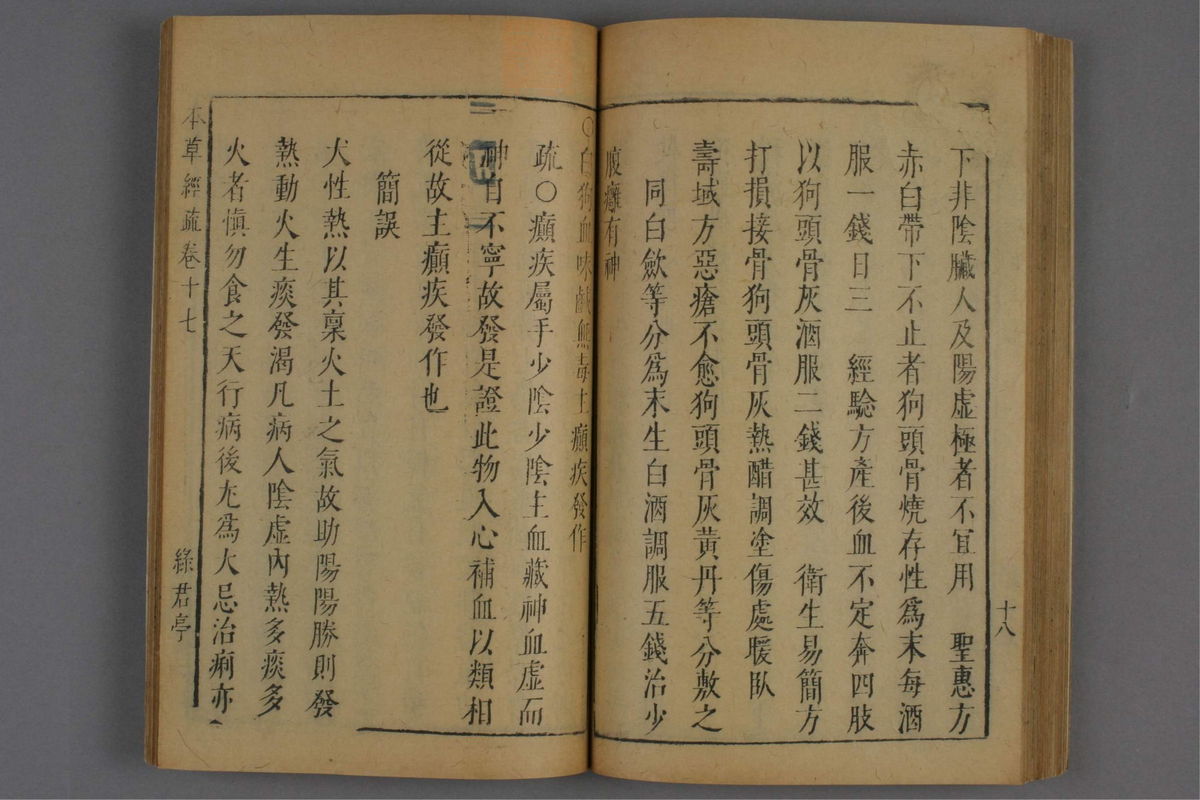 十八
下非陰臟人及陽虛極者不宜用　聖惠方
赤白帶下不止者狗頭骨燒存性爲末每酒
服一錢日三　經驗方產後血不定奔四肢
以狗頭骨灰酒服二錢甚效　衛生易簡方
打損接骨狗頭骨灰熱醋調塗傷處暖臥
壽域方惡瘡不愈狗頭骨灰黃丹等分敷之
同白歛等分爲末生白酒調服五錢治少
腹癰有神
○白狗血味鹹無毒主癲疾發作
疏○癲疾屬手少陰少陰主血藏神血虛而
神自不寧故發是證此物入心補血以類相
從故主癲疾發作也
簡誤
犬性熱以其稟火土之氣故助陽陽勝則發
熱動火生痰發渴凡病人陰虛內熱多痰多
火者慎勿食之天行病後尤爲大忌治痢亦
本草經疏卷十七
綠君亭